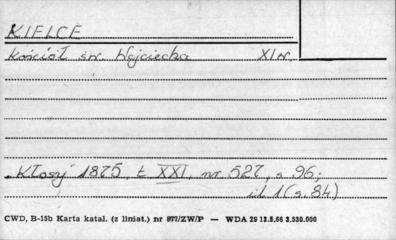 KIELCE
Kościół św. Wojciecha XI w.
„Kłosy” 1875, t. XXI, nr. 527, s 96;
il. 1 (s. 84)
CWD, B-15b Karta katal. (z liniat.) nr 877/ZW/P — WDA 29 13.5.66 3.530.000